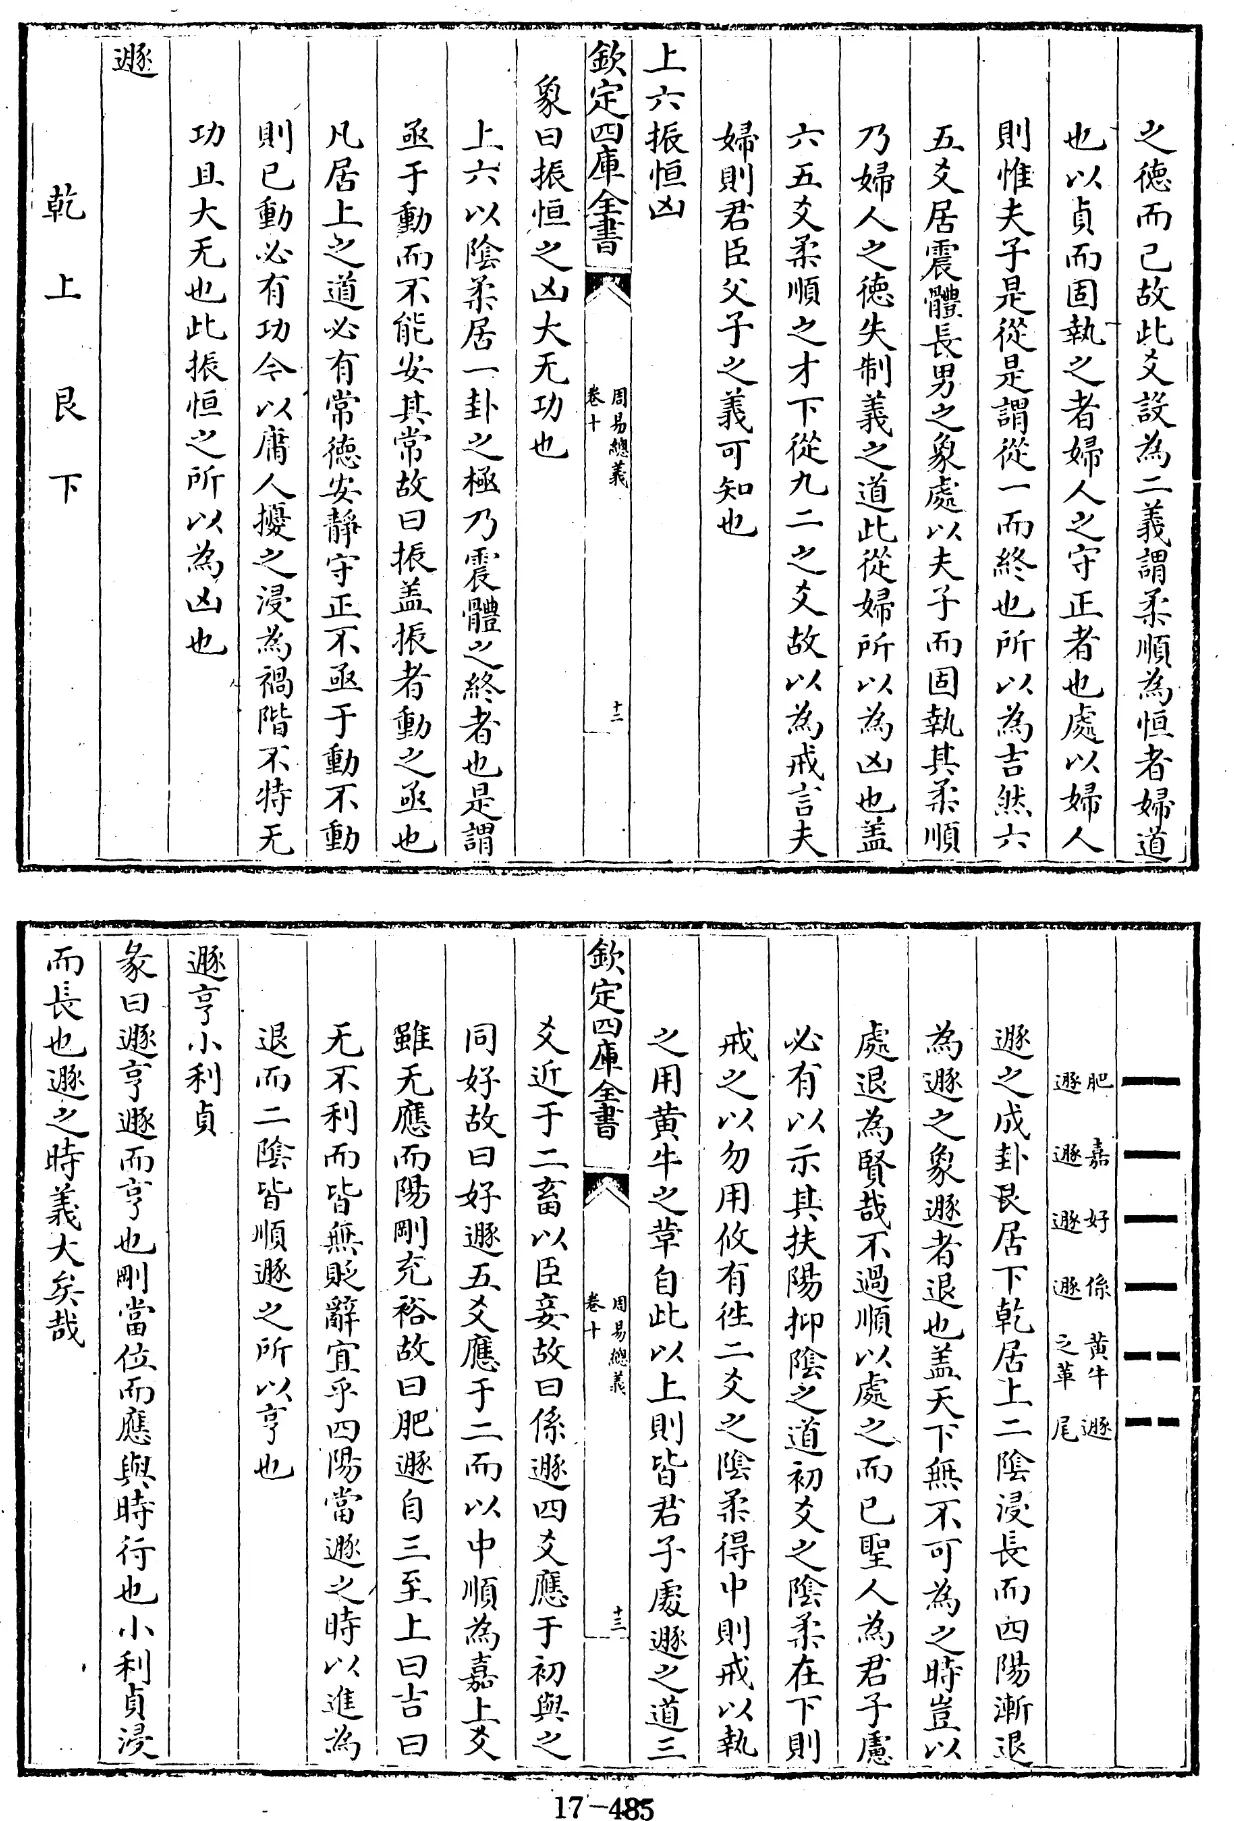 之德而已故此爻設為二義謂柔順為恒者婦道
也以貞而固執之者婦人之守正者也處以婦人
則惟夫子是從是謂從一而終也所以為吉然六
五爻居震體長男之象處以夫子而固執其柔順
乃婦人之德失制義之道此從婦所以為凶也盖
六五爻柔順之才下從九二之爻故以為戒言夫
婦則君臣父子之義可知也
上六振恒凶
欽定四庫全書
周易總義
卷十
十二
象曰振恒之凶大无功也
上六以陰柔居一卦之極乃震體之終者也是謂
亟于動而不能安其常故曰振盖振者動之亟也
凡居上之道必有常德安靜守正不亟于動不動
則已動必有功今以庸人擾之浸為禍階不特无
功且大无也此振恒之所以為凶也
遯
乾上艮下
肥遯
嘉遯
好遯
係遯
黄牛之革
遯尾
遯之成卦艮居下乾居上二陰浸長而四陽漸退
為遯之象遯者退也盖天下無不可為之時豈以
處退為賢哉不過順以處之而已聖人為君子慮
必有以示其扶陽抑陰之道初爻之陰柔在下則
戒之以勿用攸有徃二爻之陰柔得中則戒以執
之用黄牛之革自此以上則皆君子處遯之道三
欽定四庫全書
周易總義
卷十
十三
爻近于二畜以臣妾故曰係遯四爻應于初與之
同好故曰好遯五爻應于二而以中順為嘉上爻
雖无應而陽剛充裕故曰肥遯自三至上曰吉曰
无不利而皆無貶辭宜乎四陽當遯之時以進為
退而二陰皆順遯之所以亨也
遯亨小利貞
彖曰遯亨遯而亨也剛當位而應與時行也小利貞浸
而長也遯之時義大矣哉
17-485